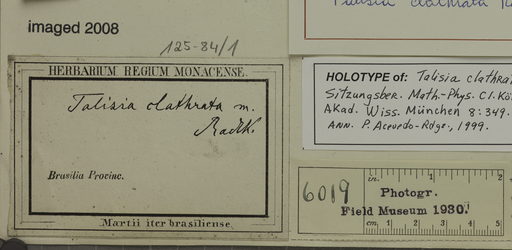 imaged 2008
125-84/1
HERBARIUM REGIUM MONACENSE.
Talisia clathrata m.
Radlk.
Brasilia Provinc.
Martii iter brasiliense.
Talisia clathrata
HOLOTYPE of: Talisia clathra
Sitzungsber. Math-Phys. Cl. Kö
Akad. Wiss. München 8:349.
ANN. P. Acevedo-Rdgz., 1999.
in. 1 2
6019
Photogr.
Field Museum 1930.
cm. 1 2 3 4 5